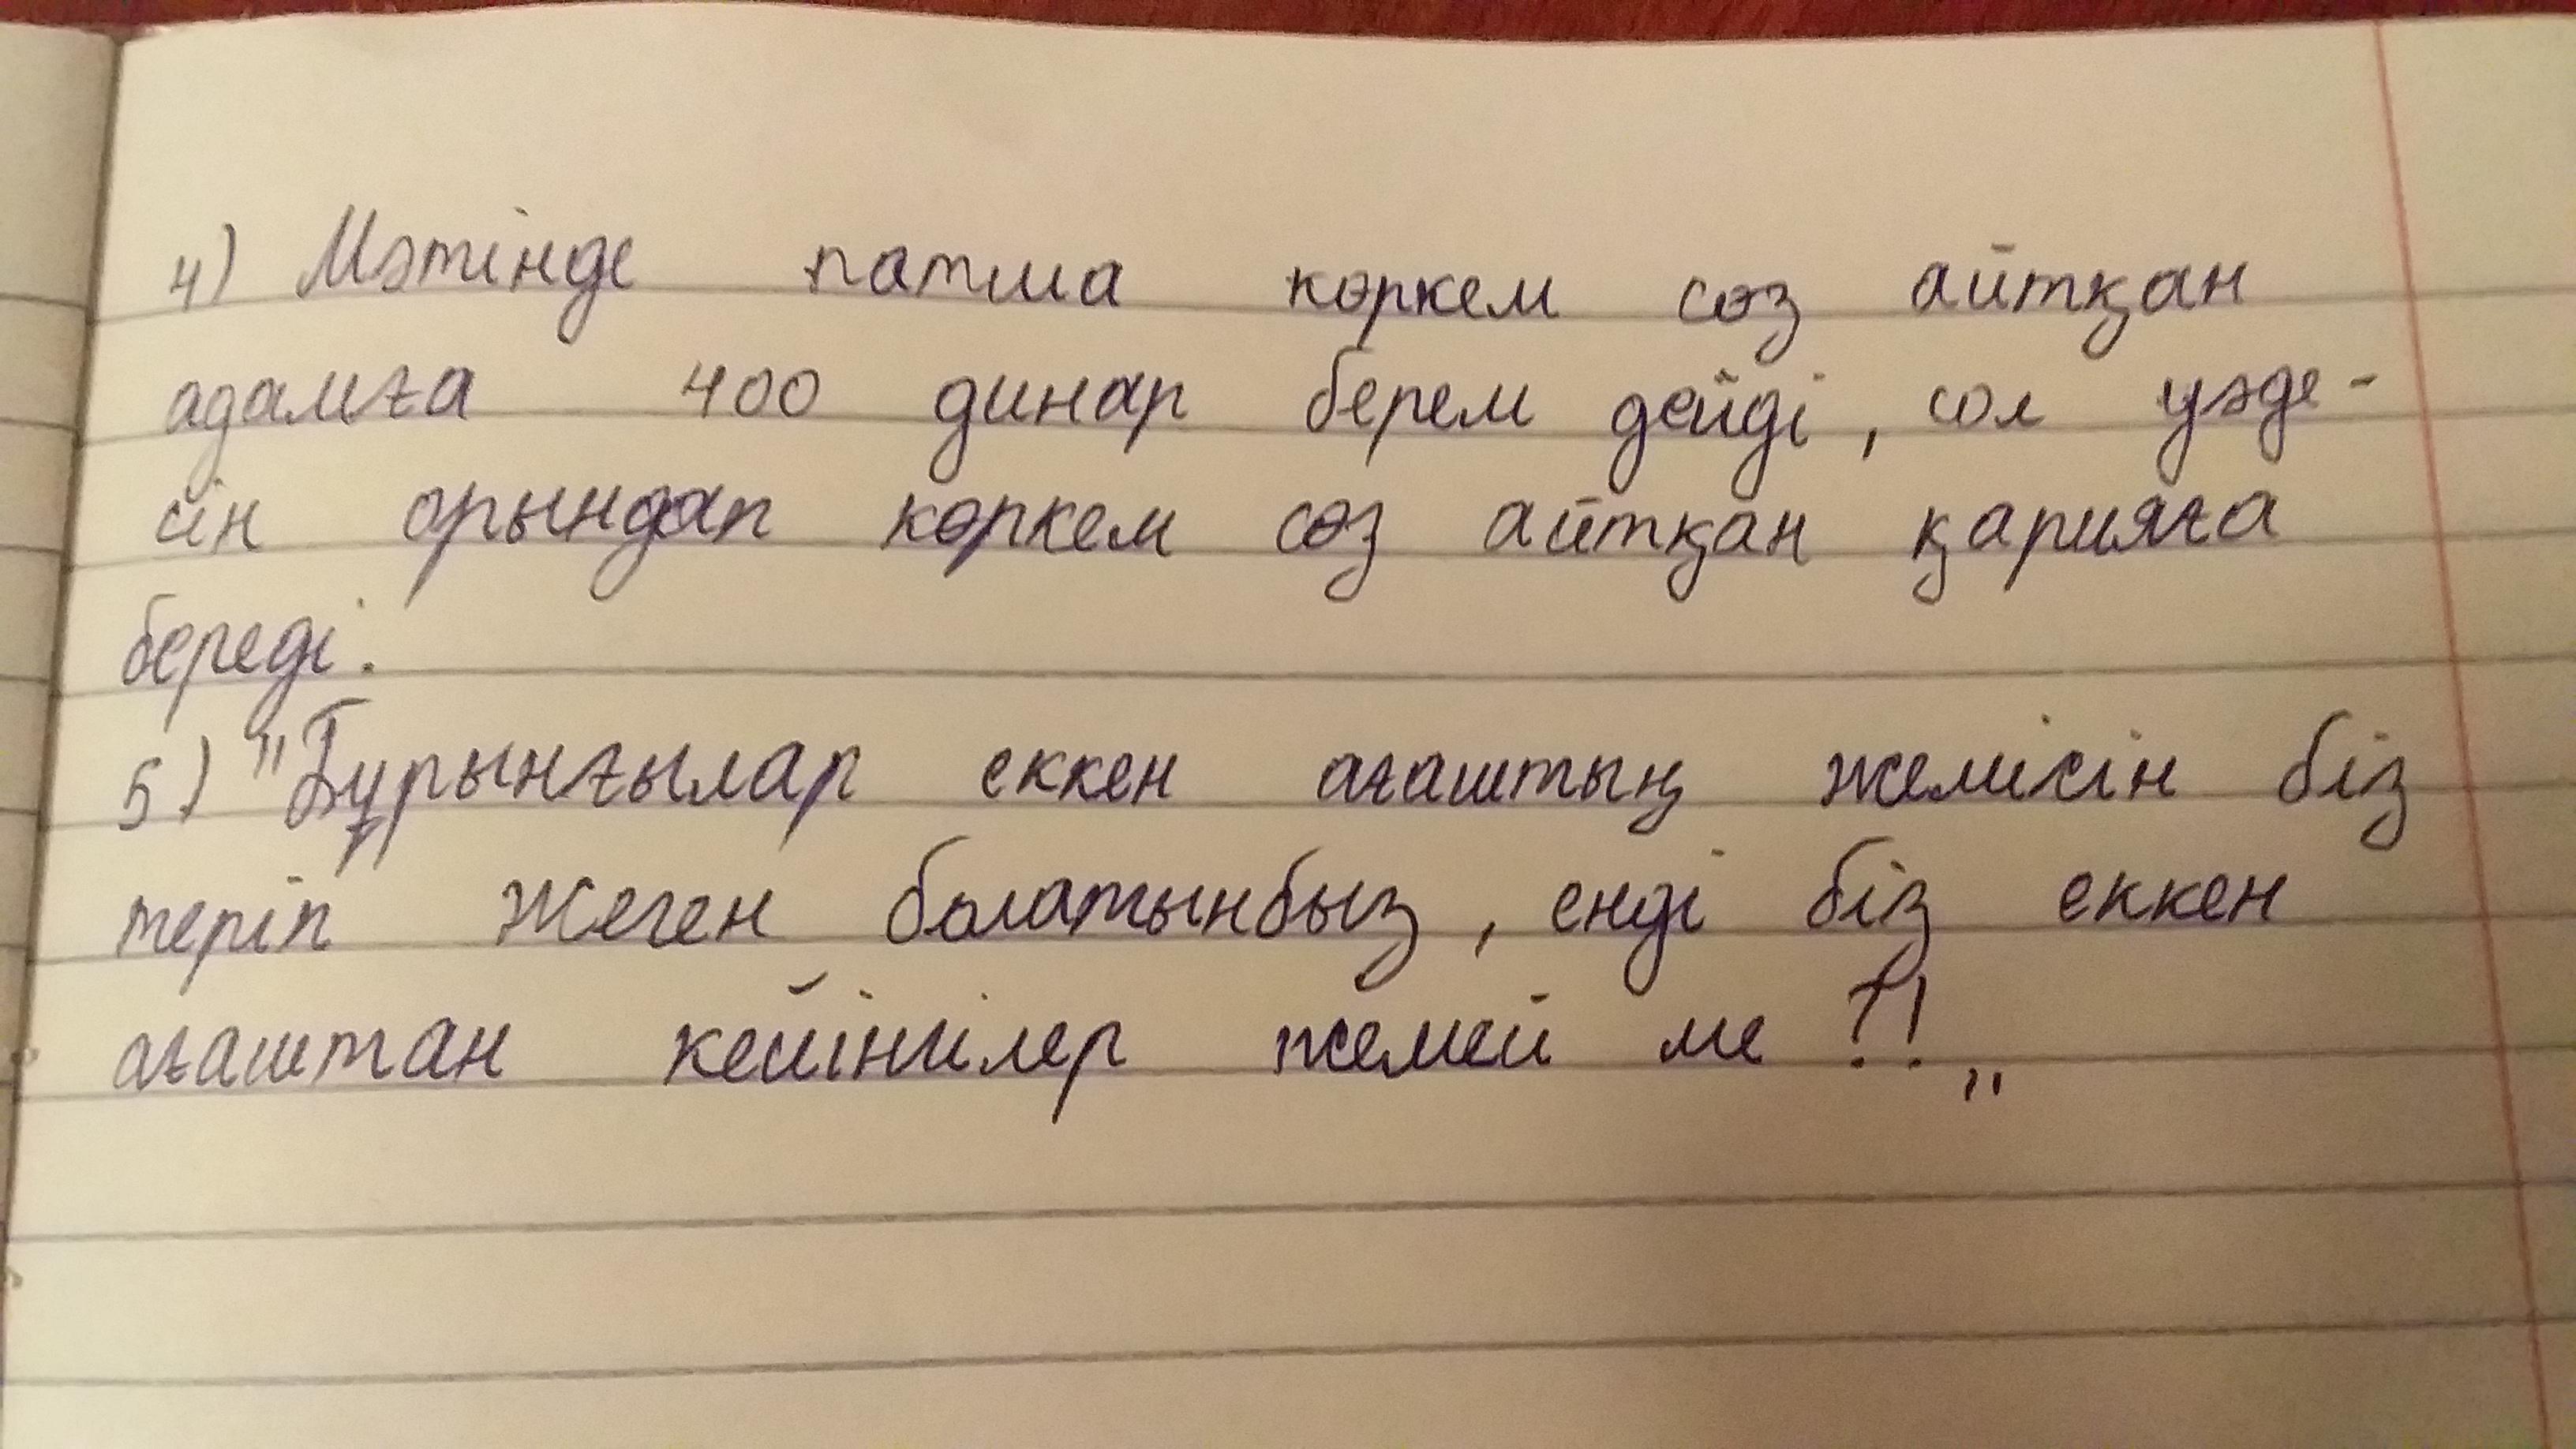 4) Мәтінде патша көркем сөз айтқан
адамға 400 динар берем дейді, сол уәде-
сін орындап көркем сөз айтқан қарияға
береді.
5) "Бұрынғылар еккен ағаштың жемісін біз
теріп жеген болатынбыз, енді біз еккен
ағаштан кейінгілер жемей ме?!„